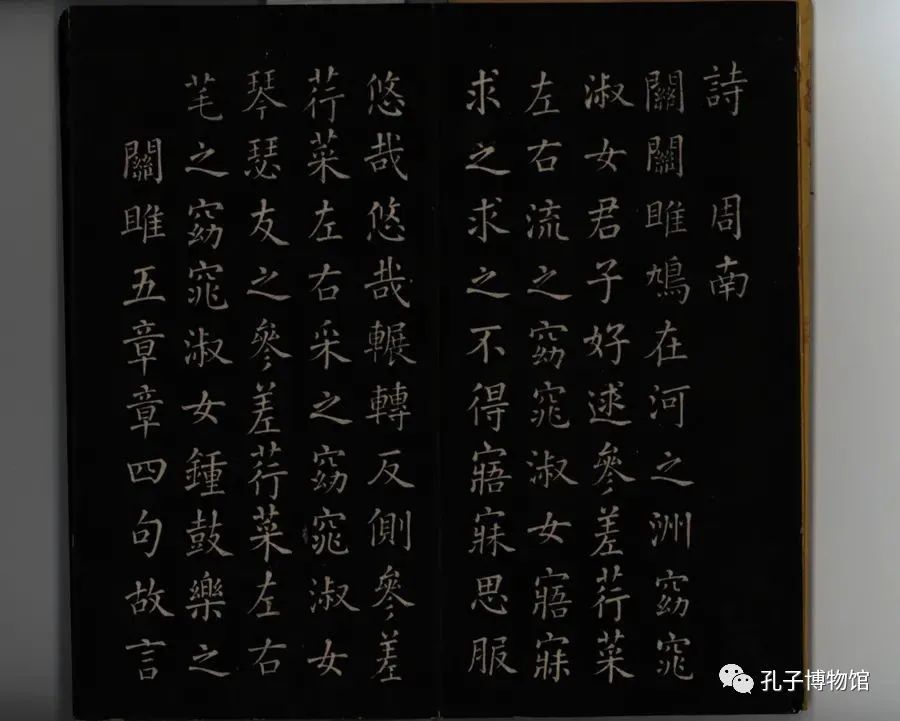 詩 周南
關關雎鳩在河之洲窈窕
淑女君子好逑參差荇菜
左右流之窈窕淑女寤寐
求之求之不得寤寐思服
悠哉悠哉輾轉反側參差
荇菜左右采之窈窕淑女
琴瑟友之參差荇菜左右
芼之窈窕淑女鍾鼓樂之
關雎五章章四句故言
孔子博物馆